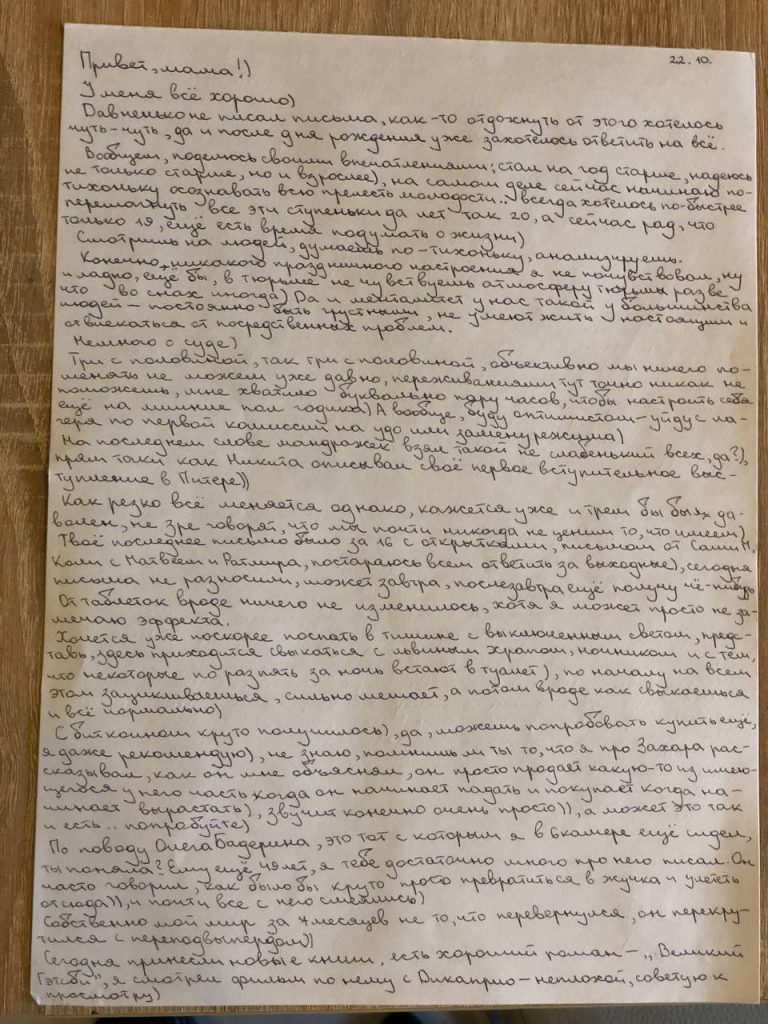 22.10.
Привет, мама!)
У меня всё хорошо)
Давненько не писал письма, как-то отдохнуть от этого хотелось
чуть-чуть, да и после дня рождения уже захотелось ответить на всё.
Вообщем, поделюсь своими впечатлениями: стал на год старше, надеюсь
не только старше, но и взрослее), на самом деле сейчас начинаю по-
тихоньку осознавать всю прелесть молодости.. всегда хотелось по-быстрее
перешагнуть все эти ступеньки да лет так 20, а сейчас рад, что
только 19, ещё есть время подумать о жизни)
Смотришь на людей, думаешь по-тихоньку, анализируешь.
Конечно, никакого праздничного настроения я не почувствовал, ну
и ладно, ещё бы, в тюрьме не чувствуешь атмосферу тюрьмы разве
что во снах иногда) Да и менталитет у нас такой у большинства
людей - постоянно быть грустными, не умеют жить настоящим и
отвлекаться от посредственных проблем.
Немного о суде)
Три с половиной, так три с половиной, объективно мы ничего по-
менять не можем уже давно, переживаниями тут точно никак не
поможешь, мне хватило буквально пару часов, чтобы настроить себя
ещё на лишние пол годика) А вообще, буду оптимистом - уйду с ла-
геря по первой комиссии на удо или замену режима)
На последнем слове мандражек взял такой не слабенький всех, да?),
прям таки как Никита описывал своё первое вступительное выс-
тупление в Питере))
Как резко всё меняется однако, кажется уже и трем бы был до-
волен, не зря говорят, что мы почти никогда не ценим то, что имеем)
Твоё последнее письмо было за 16 с открытками, письмом от Саши М,
Коли с Матвеем и Ратмира, постараюсь всем ответить за выходные), сегодня
письма не разносили, может завтра, послезавтра ещё получу чё-нибудь
От таблеток вроде ничего не изменилось, хотя я может просто не за-
мечаю эффекта.
Хочется уже поскорее поспать в тишине с выключенным светом, предс-
тавь, здесь приходится свыкаться с львиным храпом, ночником и с тем,
что некоторые по раз пять за ночь встают в туалет), по началу на всем
этом зацикливаешься, сильно мешает, а потом вроде как свыкаешься
и всё нормально)
С биткоином круто получилось), да, можешь попробовать купить ещё,
я даже рекомендую), не знаю, помнишь ли ты то, что я про Захара рас-
сказывал, как он мне объяснял, он просто продает какую-то из имею-
щегося у него часть когда он начинает падать и покупает когда на-
чинает вырастать), звучит конечно очень просто)), а может это так
и есть.. попробуйте)
По поводу Олега Бадерина, это тот с которым я в 6 камере ещё сидел,
ты поняла? Ему ещё 49 лет, я тебе достаточно много про него писал. Он
часто говорил, как было бы круто просто превратиться в жучка и улететь
отсюда)), и почти все с него смеялись)
Собственно мой мир за 4 месяцев не то, что перевернулся, он перекру-
тился с переподвыпердом))
Сегодня принесли новые книги, есть хороший роман - „Великий
Гэтсби“, я смотрел фильм по нему с Дикаприо - неплохой, советую к
просмотру)